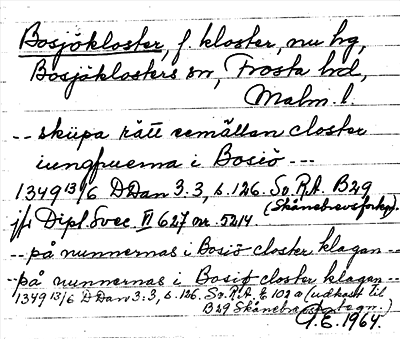 Bosjökloster, f. kloster, nu hg,
Bosjöklosters sn, Frosta hd,
Malm. l.
-- skiipa rätt eemällan closter
iungfruerna i Bosiö ---
1349 13/6 DDan 3:3, s. 126. Sv. R.A. B29
(Skånebrevsförtekn).
jfr Dipl. Svec. VI 627 nr. 5214.
-- på nunnernas i Bosiö closter klagan --
-- på nunnernas i Bosiö closter klagan --
1349 13/6 DDan 3:3, s. 126. Sv. R.A. E 102 a (udkast til
B29 Skånebrevsfortegn.)
G.E. 1964.